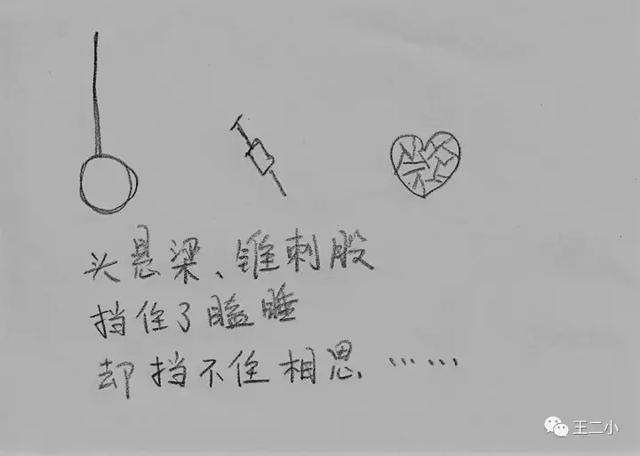 头悬梁、锥刺股
挡住了瞌睡
却挡不住相思……
王二小